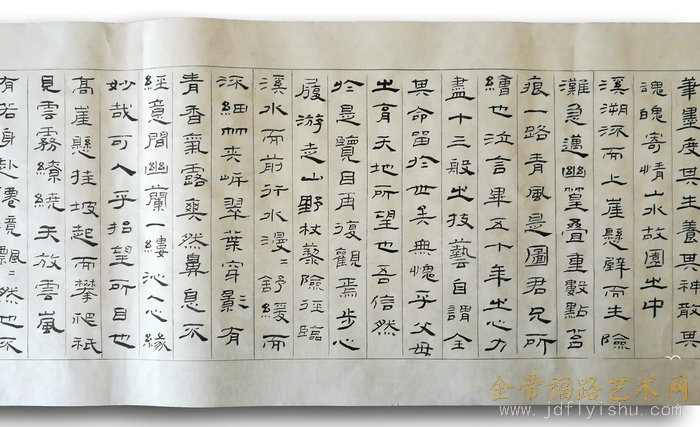 筆墨度其生養其神散其
魂魄寄情山水故園之中
溪溯流而上崖懸壁而生險
灘急邁幽篁疊重數點苔
痕一路青風是圖君兄所
繪也泣言畢五十年之心力
盡十三般之技藝自謂全
其命留於世矣無愧乎父母
之育天地所望也吾信然
於是覽目再復觀焉步心
履游走山野杖藜險徑臨
溪水而前行水漫〻舒緩而
流細竹夾岸翠葉穿影有
青香氣露爽然鼻息不
經意間幽蘭一縷沁人心緣
妙哉可人乎招望所目也
高崖懸挂坡起而攀爬祇
見雲霧繚繞天放雲嵐
有若身赴境飄〻然也不
金带福路艺术网
www.jdflyishu.com